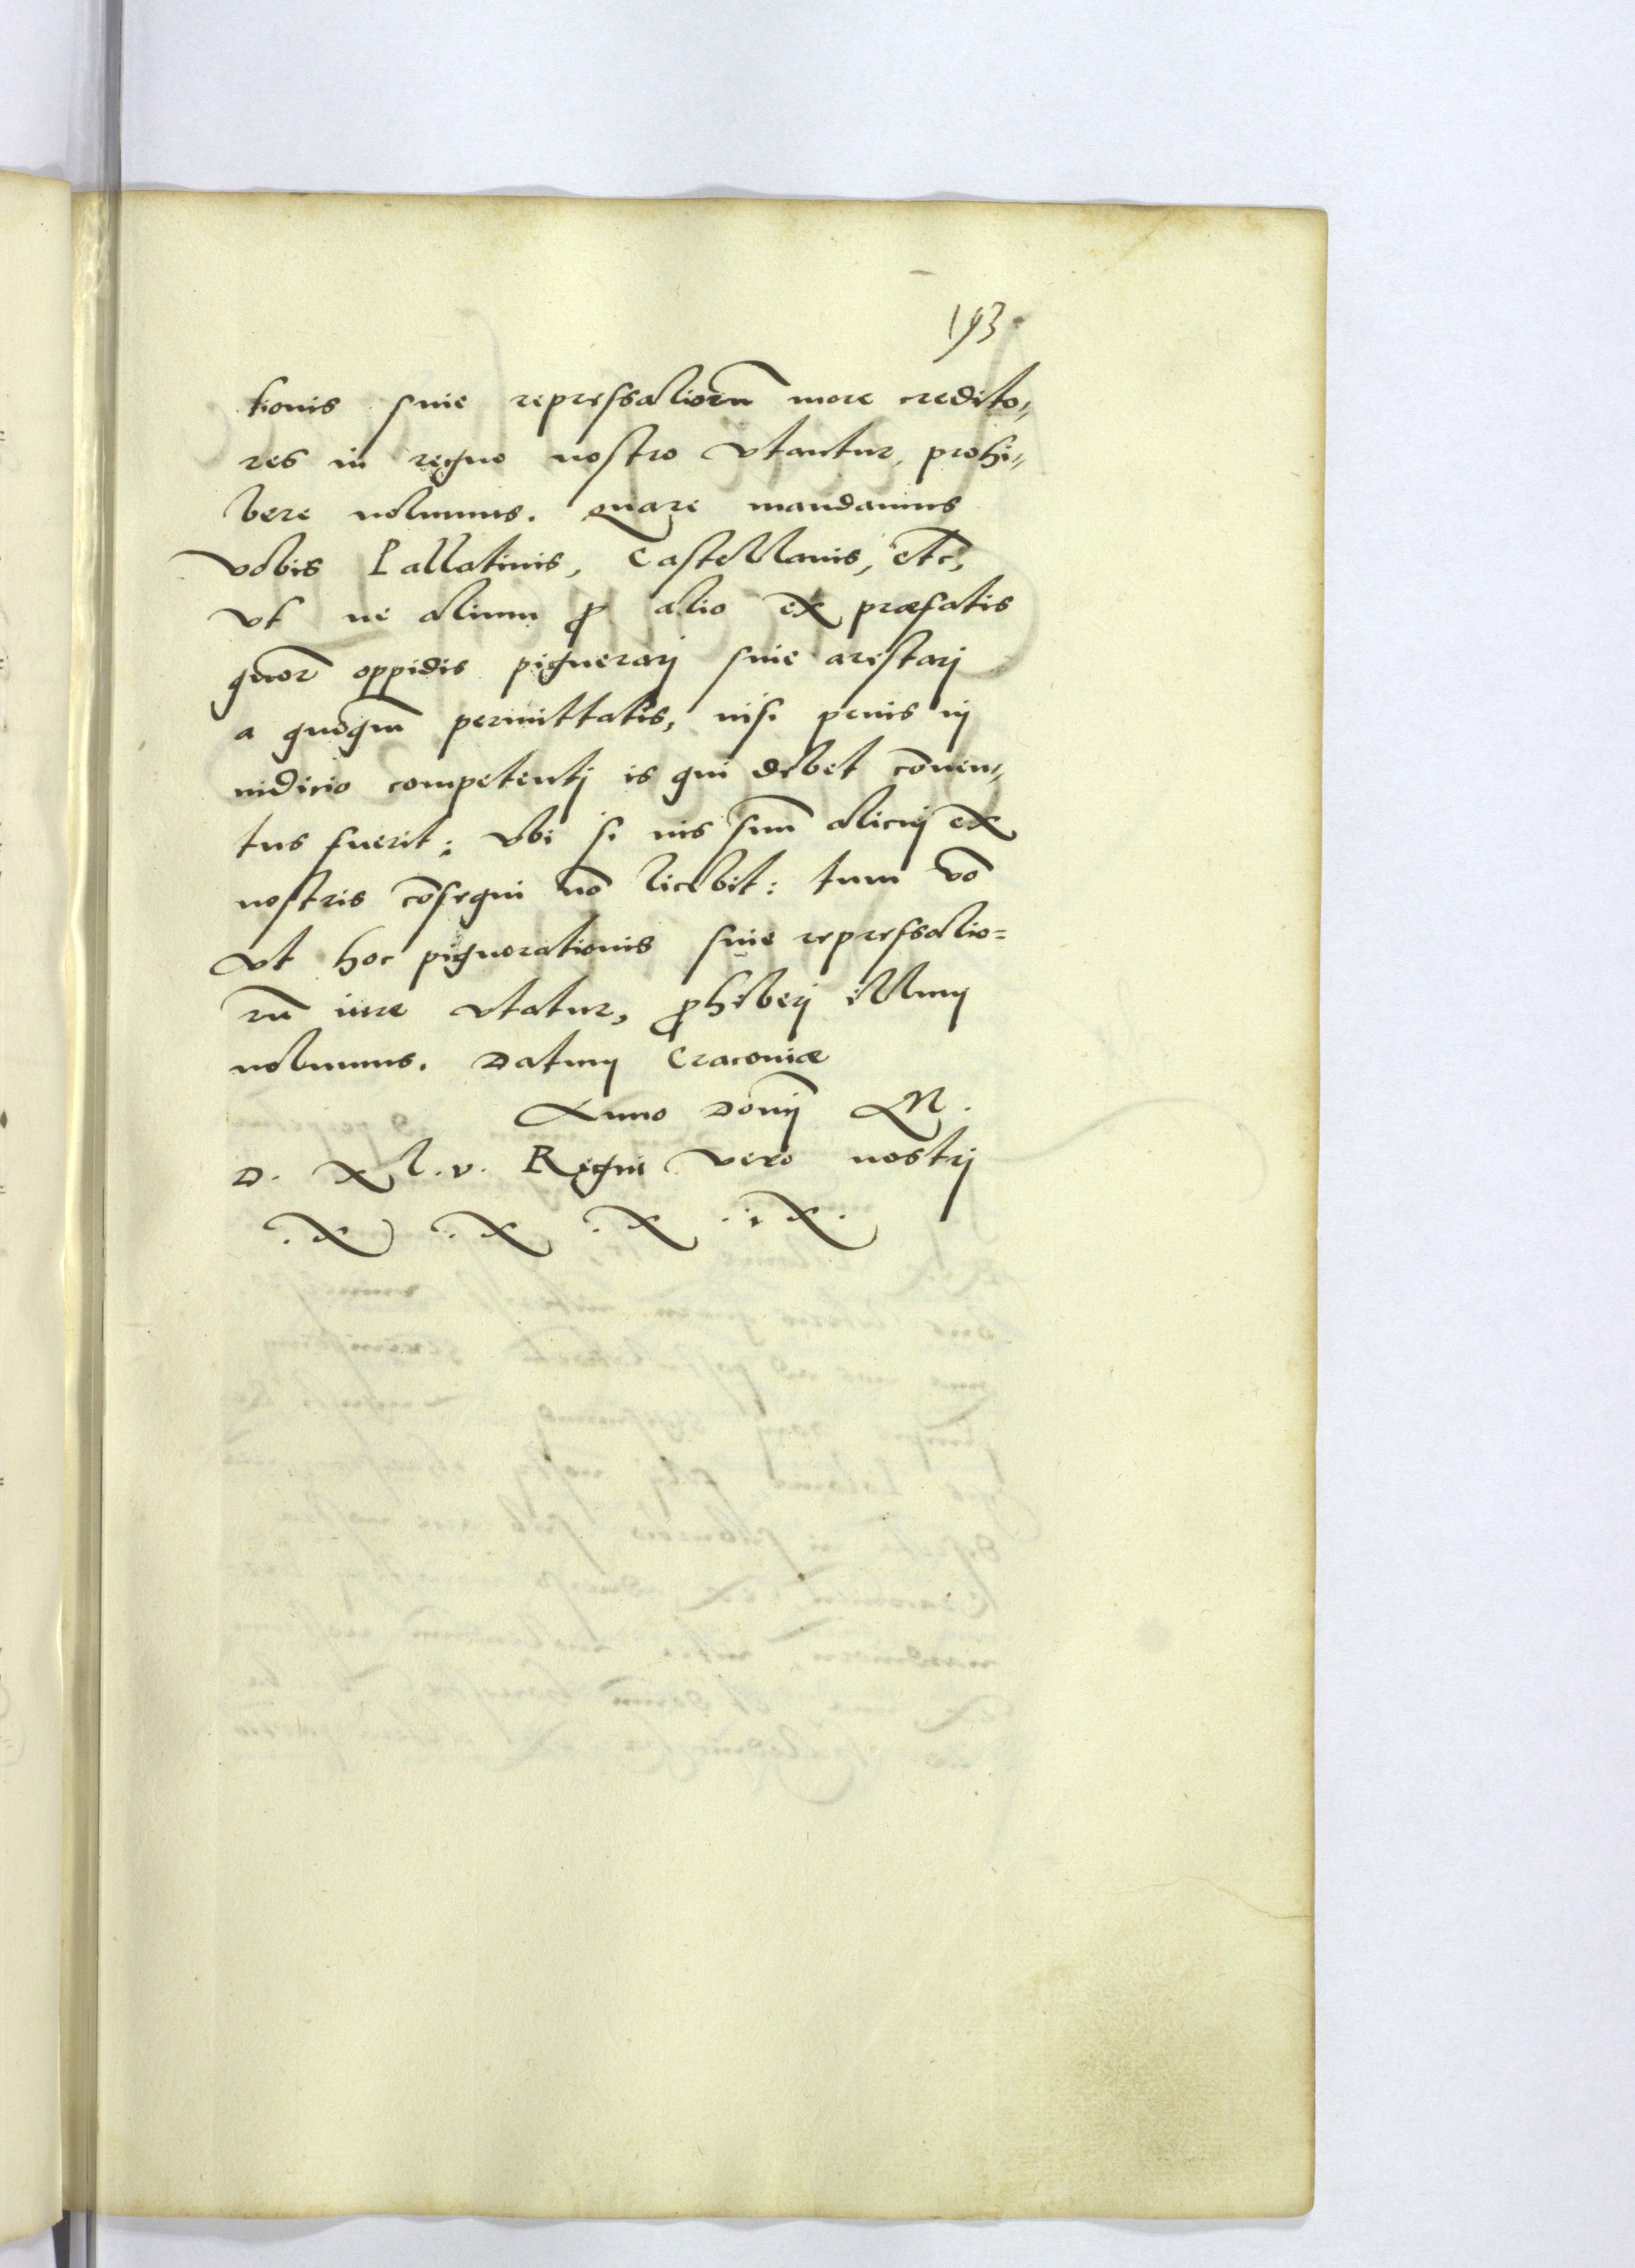 193
tionis siue repressaliorū more credito„
res in regno nostro vtantur, prohi„
bere nolumus. Quare mandamus
vobis Pallatinis, Castellanis, etc,
vt ne alium ꝓ alio ex præfatis
quor̄ oppidis pignerarj siue arestarj
a quoqm̄ permittatis, nisi prius in
iudicio competentj is qui debet cōuen„
tus fuerit; vbi si ius suū alicuj ex
nostris cōsequi nō licebit: tum vō
vt hoc pignorationis siue repressalio=
rū iure vtatur, ꝓhiberj illum
nolumus. Datum Cracouiæ
Anno Domīj M.
D. xl.v. Regni vero nostrj
.x) .x .x .ix.